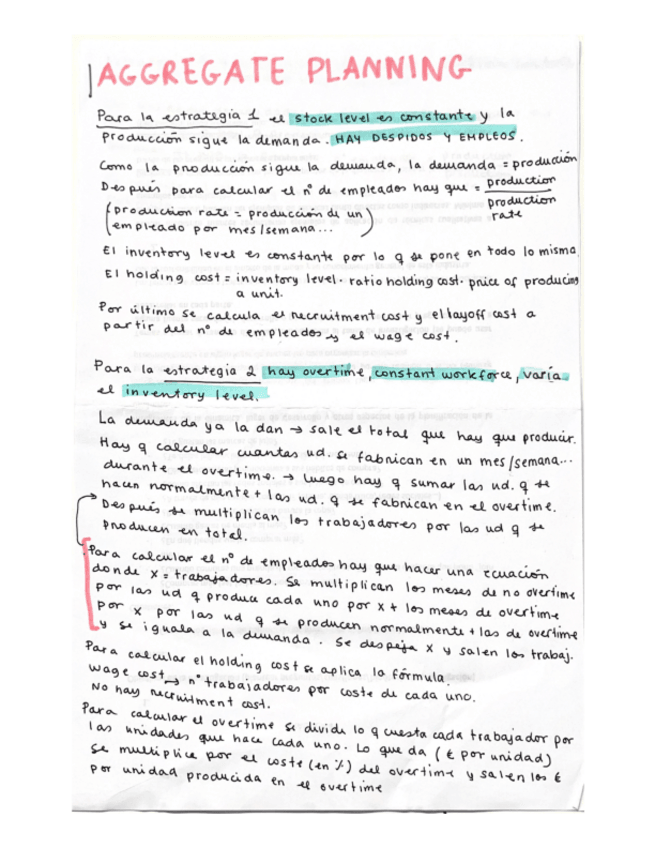 AGGREGATE PLANNING
Para la estrategia 1 el stock level es constante y la
producción sigue la demanda. HAY DESPIDOS Y EMPLEOS.
Como la producción sigue la demanda, la demanda = producción
Después para calcular el nº de empleados hay que = production
production rate
(production rate = producción de un
empleado por mes/semana...)
El inventory level es constante por lo q se pone en todo lo mismo.
El holding cost = inventory level · ratio holding cost · price of producing
a unit.
Por último se calcula el recruitment cost y el layoff cost a
partir del nº de empleados y el wage cost.
Para la estrategia 2 hay overtime, constant workforce, varía
el inventory level.
La demanda ya la dan → sale el total que hay que producir.
Hay q calcular cuantas ud. se fabrican en un mes/semana...
durante el overtime. → luego hay q sumar las ud. q se
hacen normalmente + las ud. q se fabrican en el overtime.
Después se multiplican los trabajadores por las ud q se
producen en total.
Para calcular el nº de empleados hay que hacer una ecuación
donde x = trabajadores. Se multiplican los meses de no overtime
por las ud q produce cada uno por x + los meses de overtime
por x por las ud q se producen normalmente + las de overtime
y se iguala a la demanda. Se despeja x y salen los trabaj.
Para calcular el holding cost se aplica la fórmula.
Wage cost → nº trabajadores por coste de cada uno.
No hay recruitment cost.
Para calcular el overtime se divide lo q cuesta cada trabajador por
las unidades que hace cada uno. Lo que da (€ por unidad)
se multiplica por el coste (en %) del overtime y salen los €
por unidad producida en el overtime